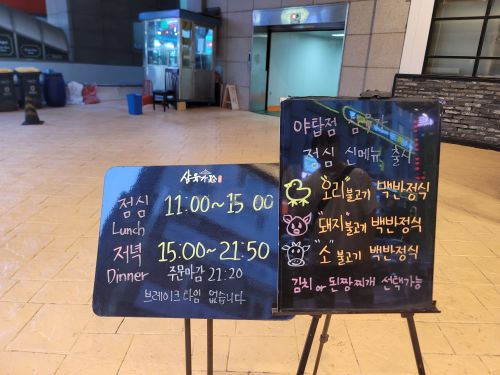 점심 11:00~15:00
Lunch
저녁 15:00~21:50
Dinner 주문마감 21:20
브레이크 타임 없습니다
야탑점
점심 신메뉴 출시
"오리"불고기 백반정식
"돼지"불고기 백반정식
"소"불고기 백반정식
김치 or 된짱찌개 선택가능